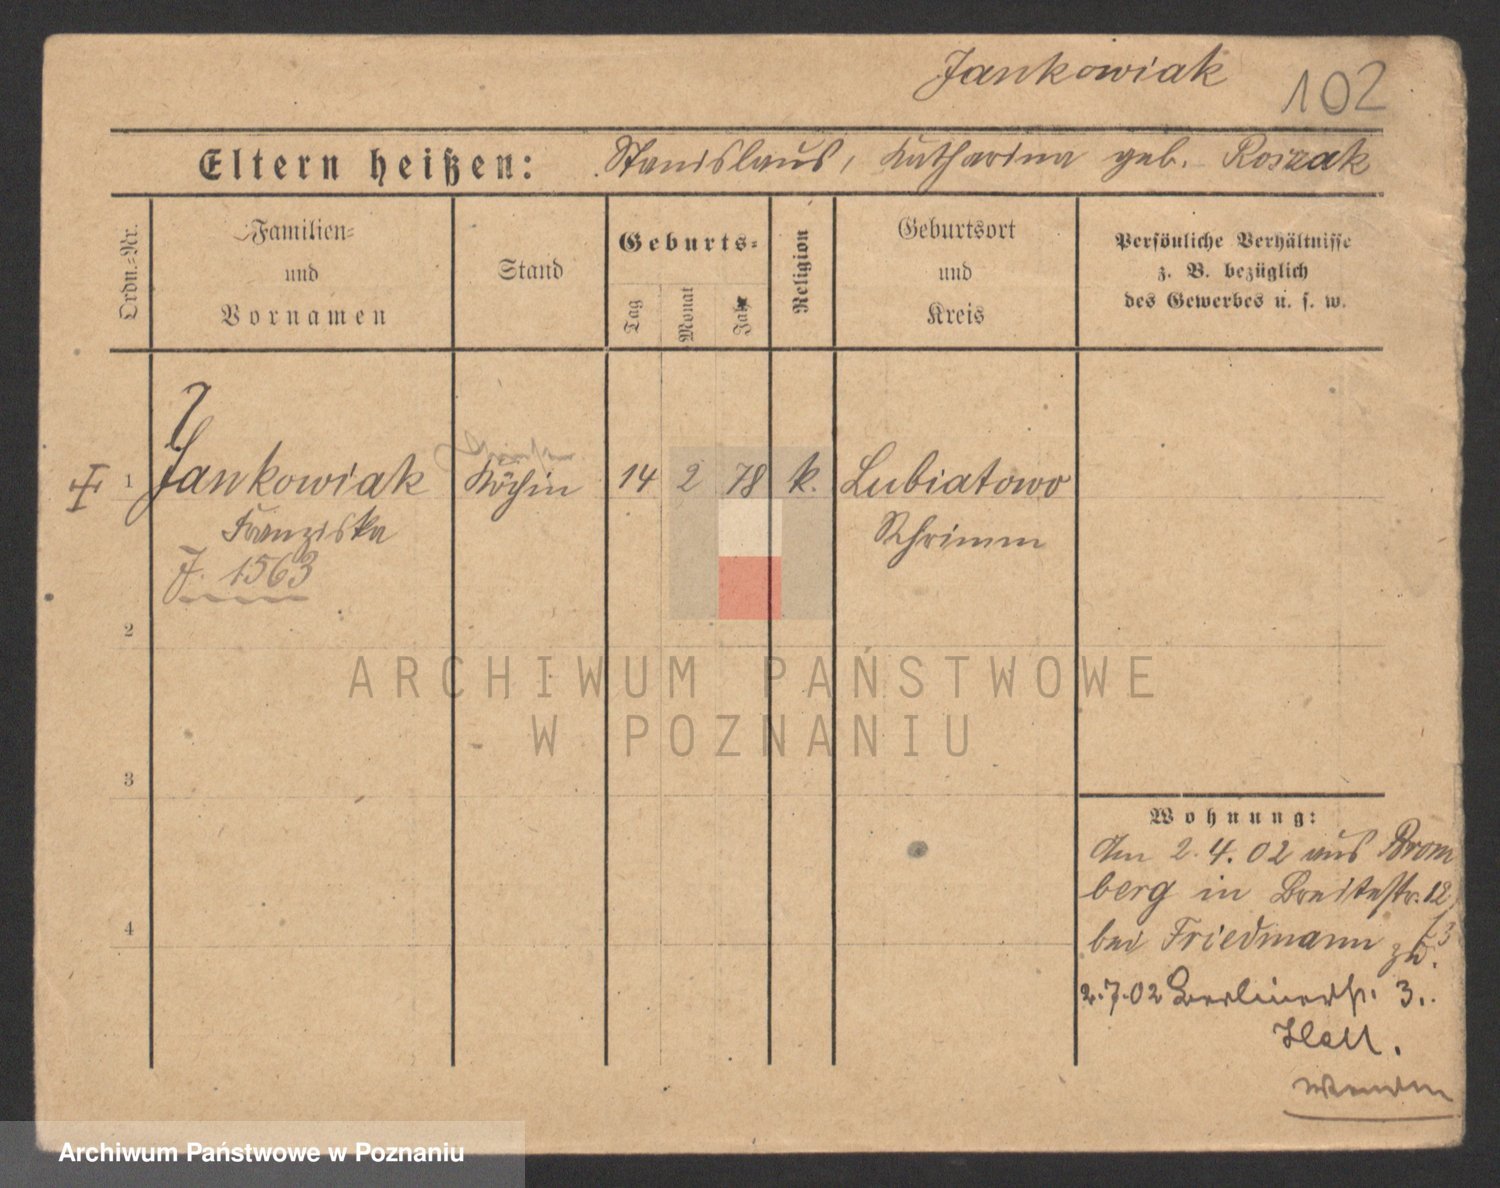 Jankowiak 102
Eltern heißen: Stanislaus, Katharina geb. Roszak
Ordn.-Nr.
Familien-
und
Vornamen
Stand
Geburts-
Tag
Monat
Jahr
Religion
Geburtsort
und
Kreis
Persönliche Verhältnisse
z. B. bezüglich
des Gewerbes u. s. w.
1 Jankowiak Köchin 14 2 78 k. Lubiatowo
Franziska Schrimm
J. 1563
2
ARCHIWUM PAŃSTWOWE
W POZNANIU
3
4
Wohnung:
Am 2.4.02 aus Brom
berg in Breitestr. 12
bei Friedmann
2.7.02 Berlinerstr. 3.
wenden
Archiwum Państwowe w Poznaniu